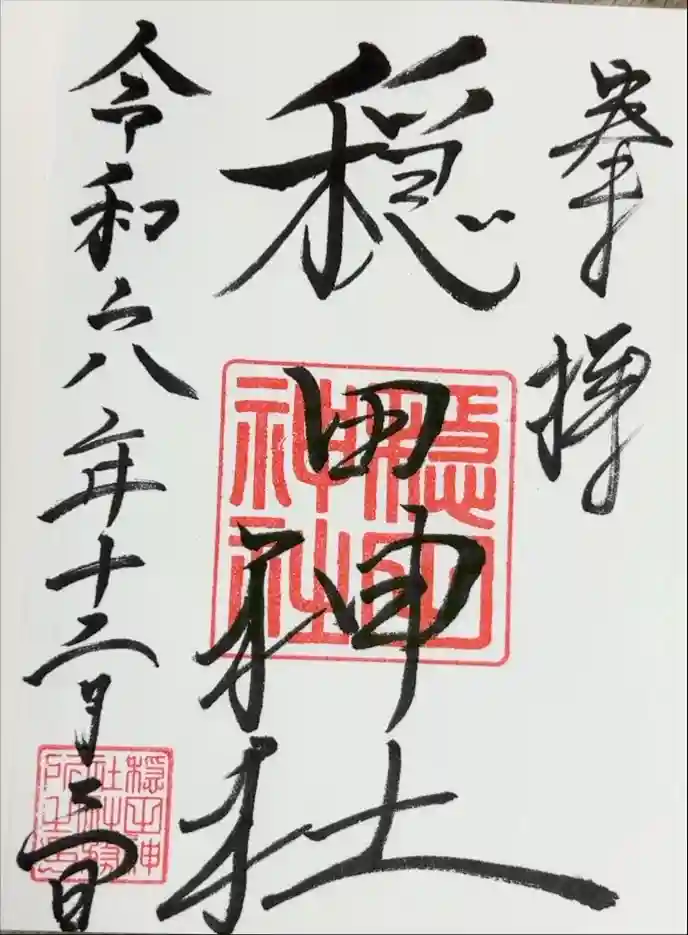 奉拝
穏田神社
令和六年十二月二日
穏田
神社
穏田神
社社務
所之